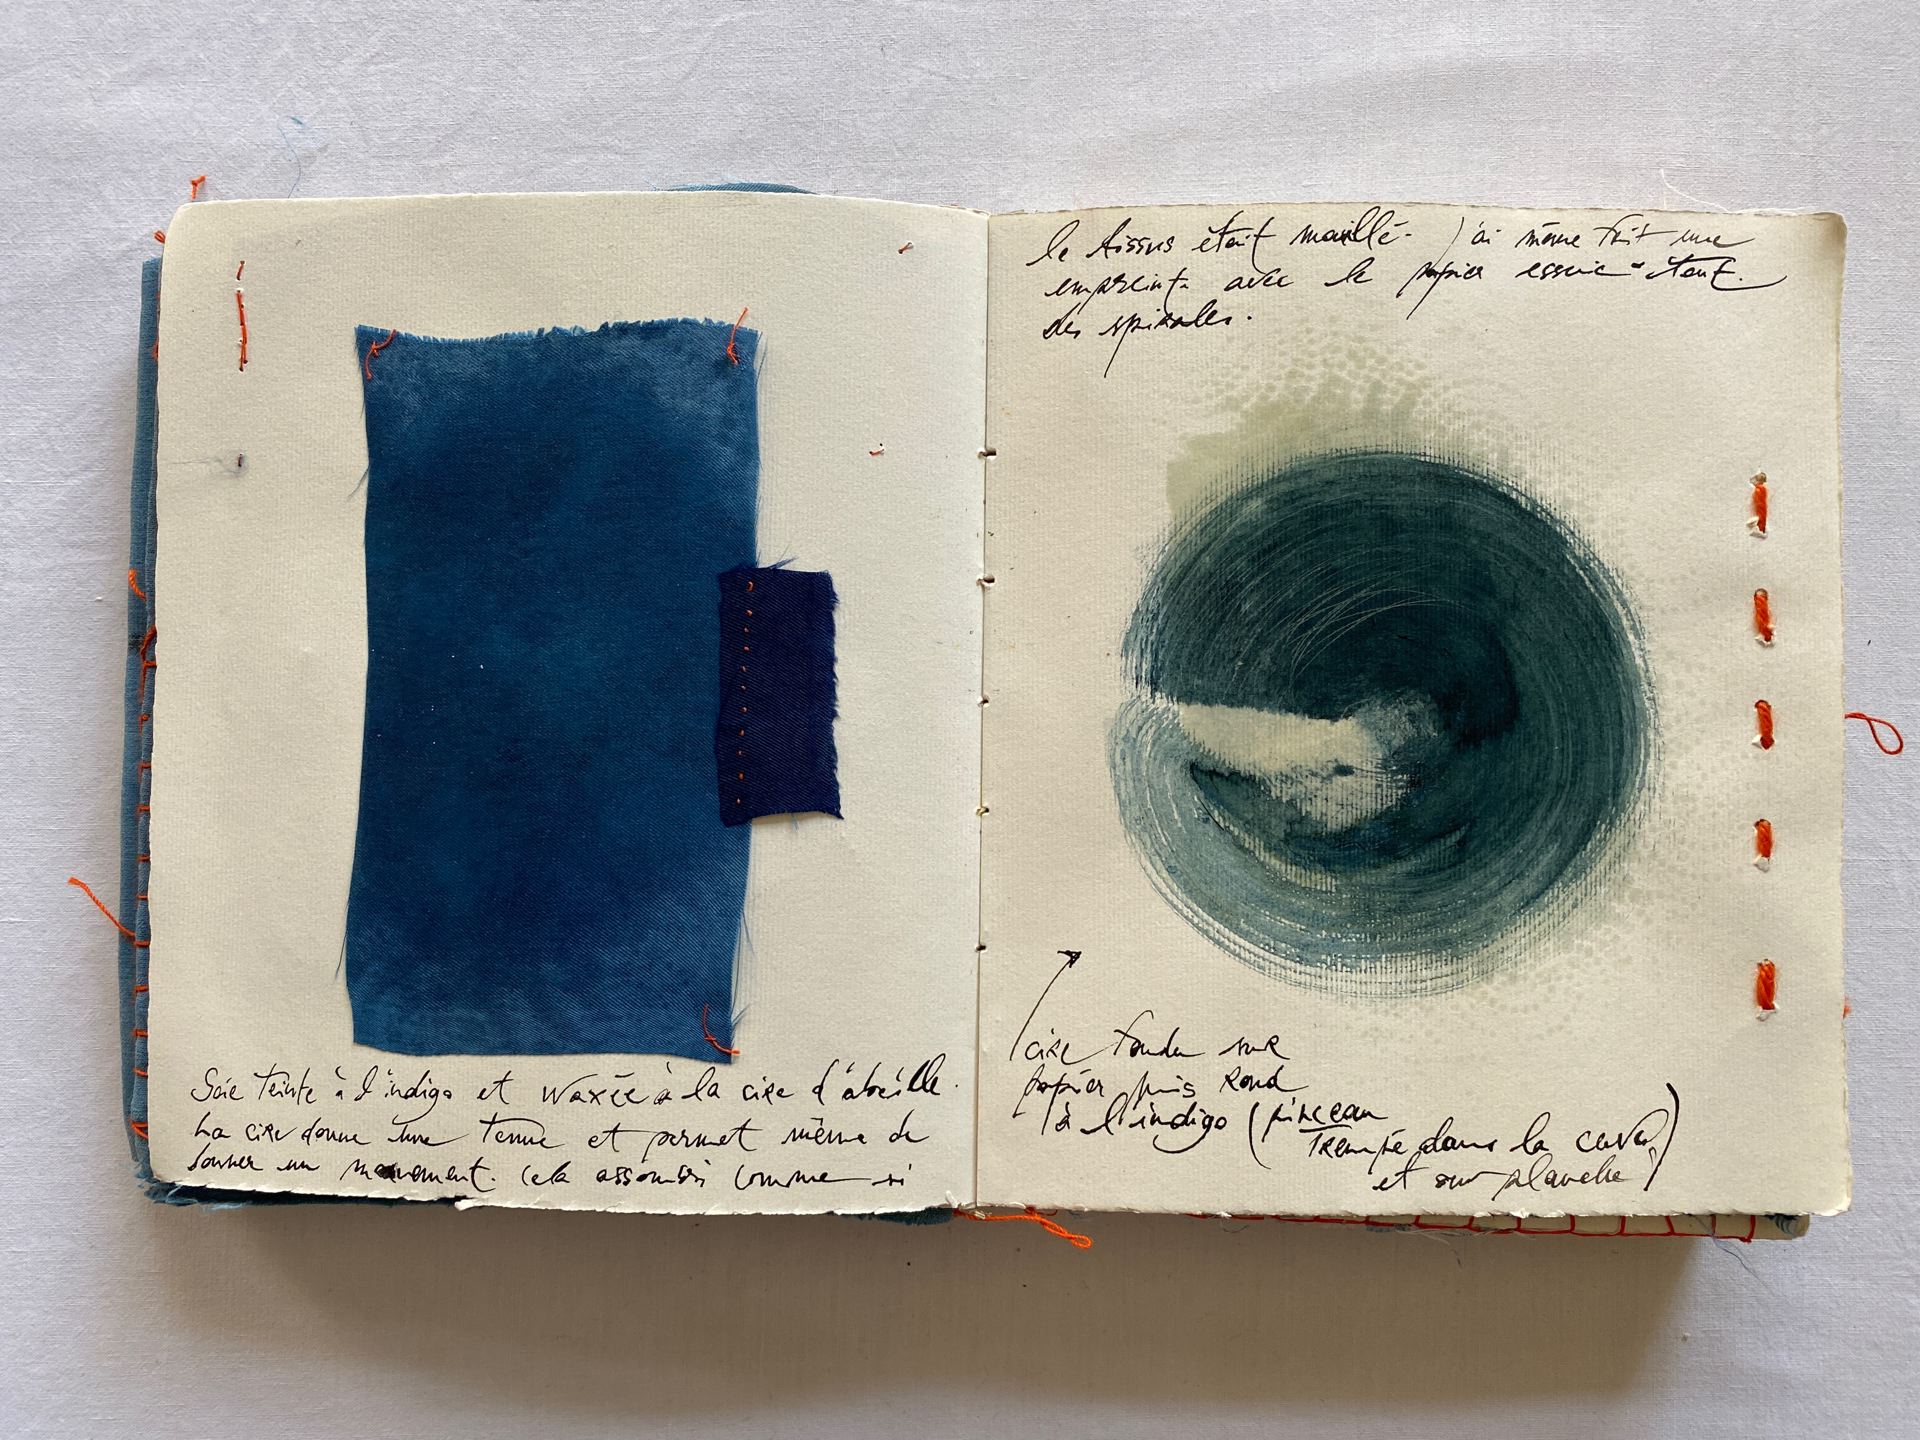 Soie teinte à l'indigo et waxée à la cire d'abeille.
La cire donne une tenue et permet même de
donner un mouvement. Cela assombri comme si
le tissus était mouillé. J'ai même fait une
empreinte avec le papier essuie-tout.
des spirales.
cire fondu sur
papier puis rond
à l'indigo (pinceau
trempé dans la cuve,
et sur planche)